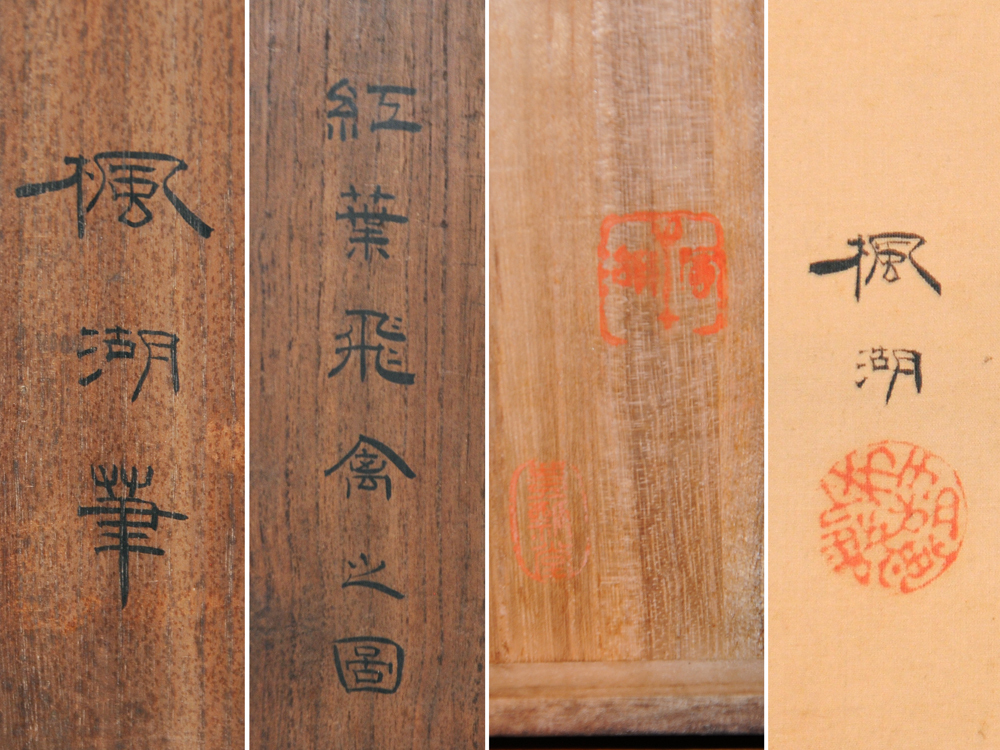 楓湖筆
紅葉飛禽之圖
楓湖